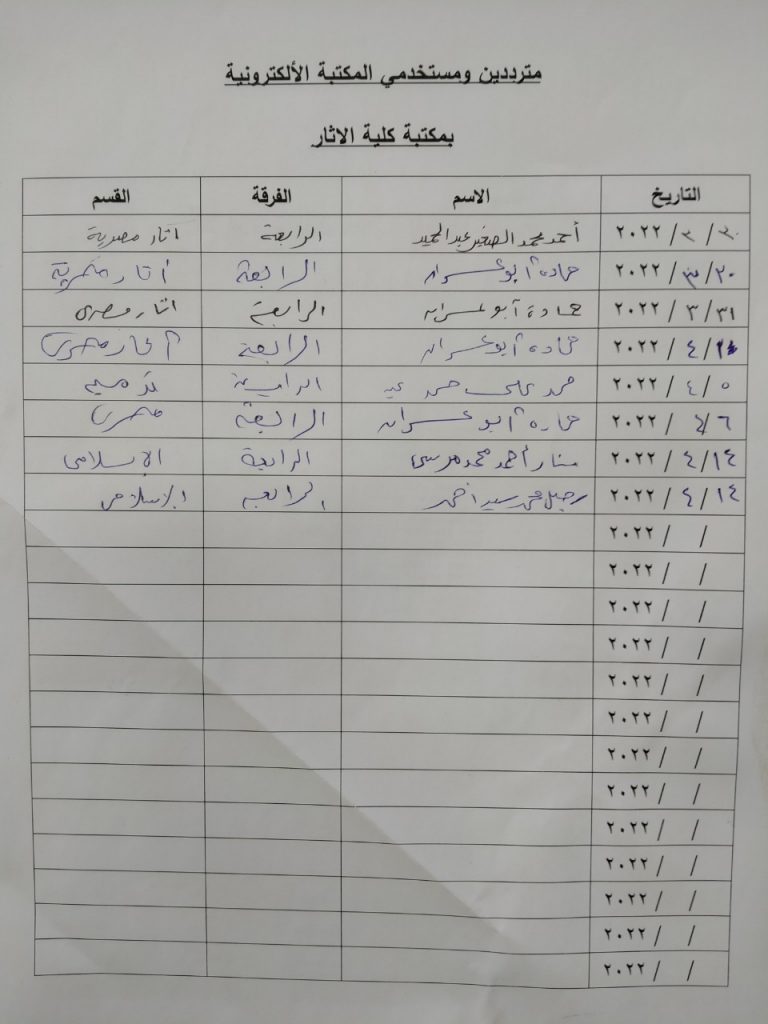 مترددين ومستخدمي المكتبة الألكترونية
بمكتبة كلية الاثار
التاريخ الاسم الفرقة القسم
٣٠ / ٣ / ٢٠٢٢ أحمد محمد الصغير عبد الحميد الرابعة اثار مصرية
٣٠ / ٣ / ٢٠٢٢ حماده أبو عسران الرابعة أثار مصرية
٣١ / ٣ / ٢٠٢٢ حمادة أبو عسران الرابعة اثار مصرى
/ ٤ / ٢٠٢٢ حماده أبو عسران الرابعة أثار مصرى
٥ / ٤ / ٢٠٢٢ على ترميم
٦ / ٤ / ٢٠٢٢ حماده أبو عسران الرابعة مصرى
١٤ / ٤ / ٢٠٢٢ منار أحمد محمد مرسى الرابعة الإسلامى
١٤ / ٤ / ٢٠٢٢ سيد الرابعه الاسلامى
/ / ٢٠٢٢
/ / ٢٠٢٢
/ / ٢٠٢٢
/ / ٢٠٢٢
/ / ٢٠٢٢
/ / ٢٠٢٢
/ / ٢٠٢٢
/ / ٢٠٢٢
/ / ٢٠٢٢
/ / ٢٠٢٢
/ / ٢٠٢٢
/ / ٢٠٢٢
/ / ٢٠٢٢